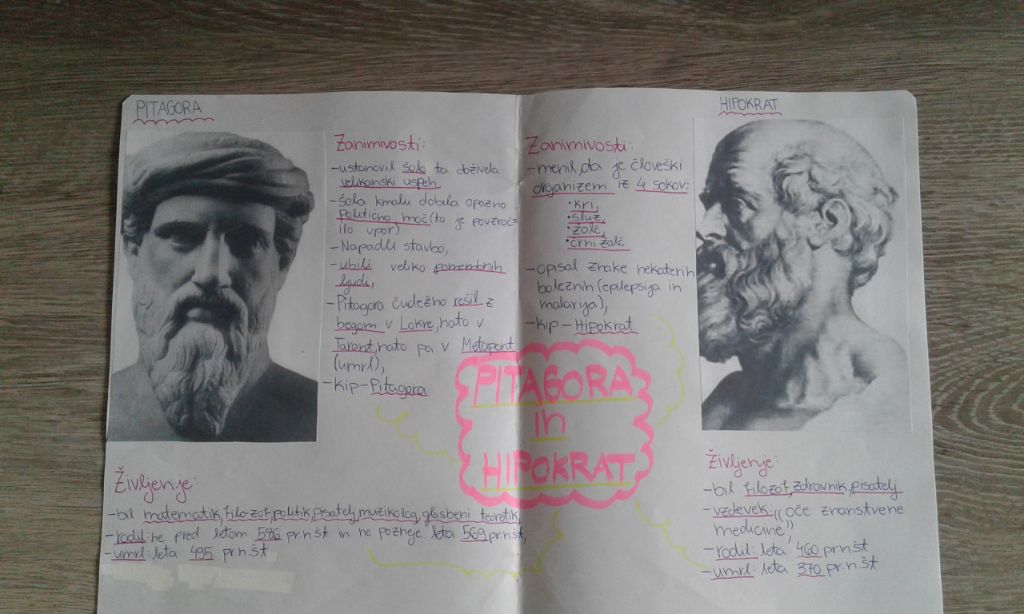 PITAGORA
Zanimivosti:
-ustanovil šolo ta doživela
velikanski uspeh
-šola kmalu dobila opazno
politično moč (to je povzroč=
ilo upor)
-Napadli stavbo,
-ubili veliko pomembnih
ljudi,
-Pitagora čudežno rešil z
begom v Lokre, nato v
Tarant, nato pa v Metapont
(umrl),
-Kip-Pitagora
Življenje:
-bil matematik, filozof, politik, pisatelj, muzikolog, glasbeni teoretik,
-rodil: ne pred letom 596 pr.n.št in ne pozneje leta 569 pr.n.št,
-umrl: leta 495 pr.n.št
PITAGORA
in
HIPOKRAT
HIPOKRAT
Zanimivosti:
-menil, da je človeški
organizem iz 4 sokov:
•kri,
•sluz,
•žolč,
•črni žolč
-opisal znake nekaterih
boleznih (epilepsija in
malarija),
-kip-Hipokrat
Življenje:
-bil filozof, zdravnik, pisatelj
-vzdevek: "oče znanstvene
medicine"
-rodil: leta 460 pr.n.št
-umrl: leta 370 pr.n.št